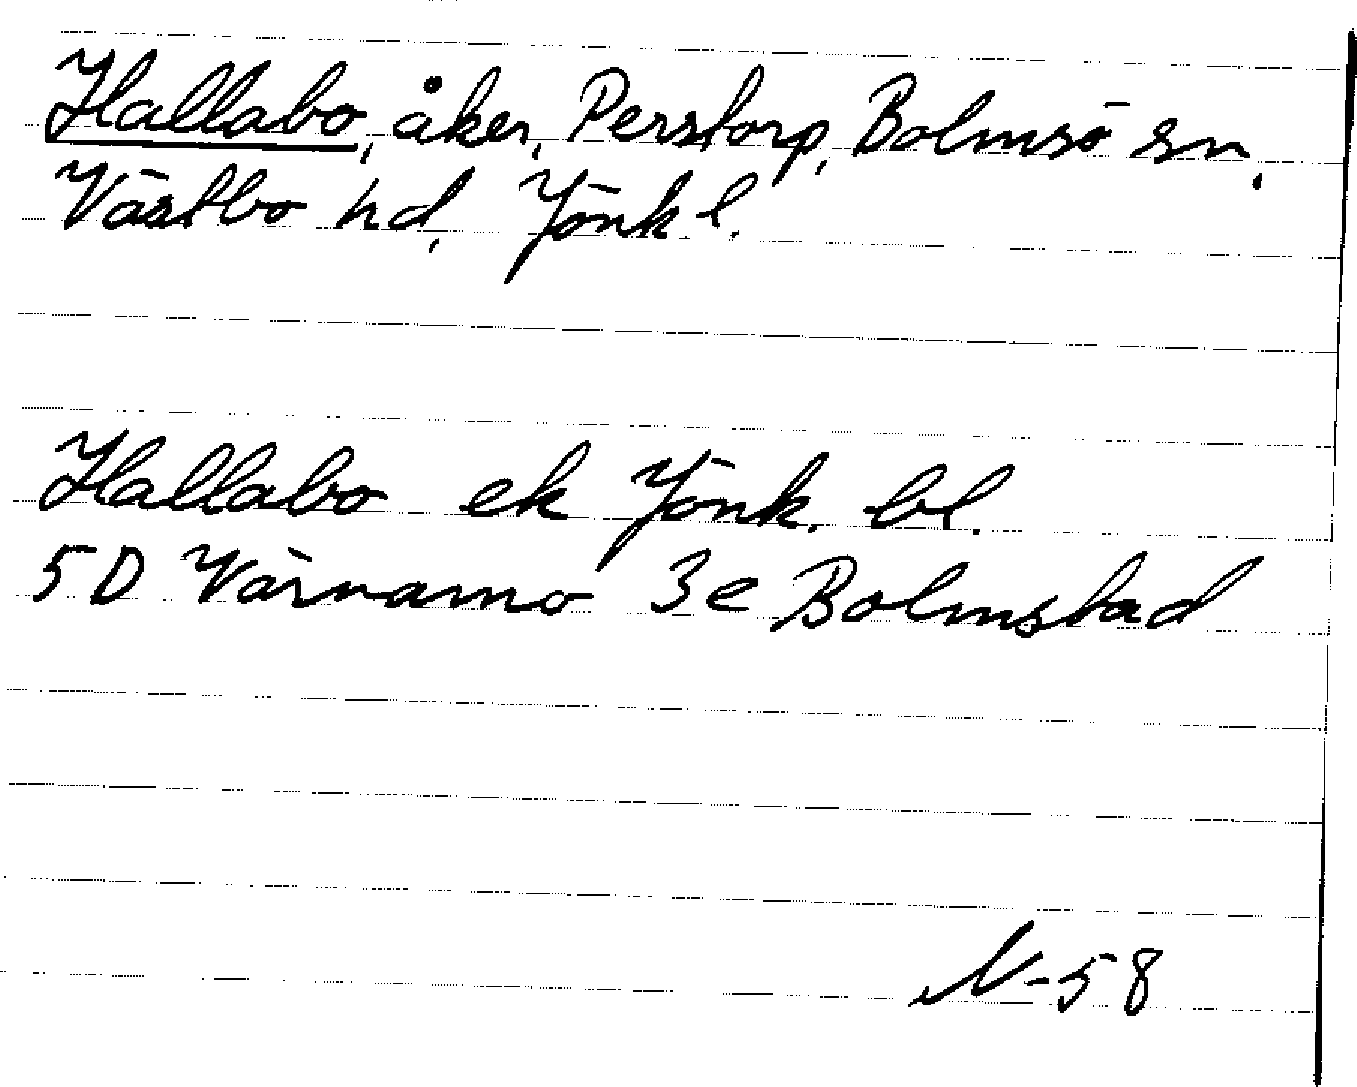 Hallabo, åker, Perstorp, Bolmsö sn,
Västbo hd, Jönk l.
Hallabo ek Jönk. bl.
5D Värnamo 3e Bolmstad
N-58